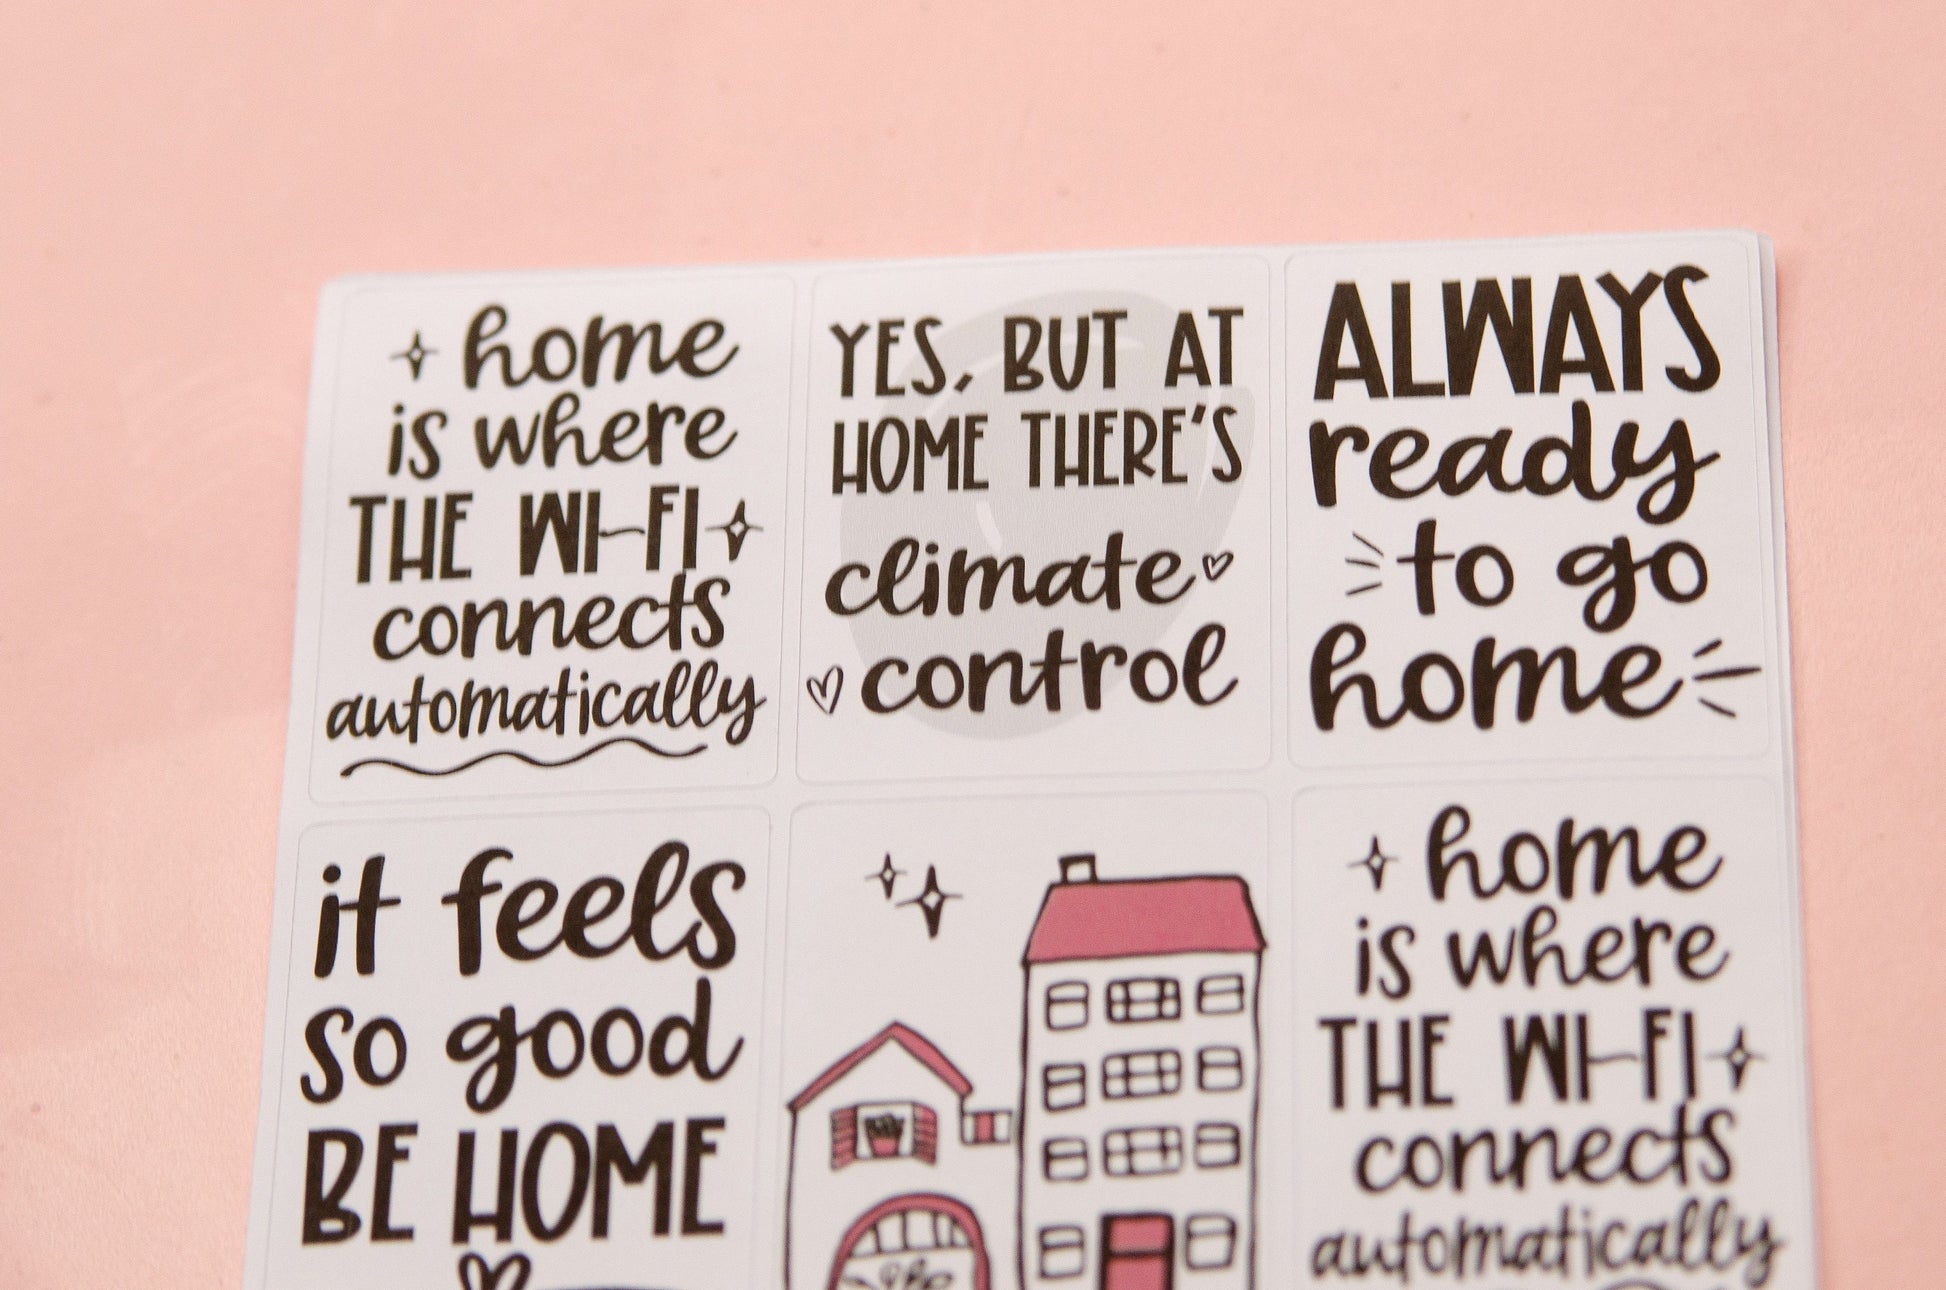 home
is where
THE WI-FI
connects
automatically
YES, BUT AT
HOME THERE'S
climate
control
ALWAYS
ready
to go
home
it feels
so good
BE HOME
home
is where
THE WI-FI
connects
automatically